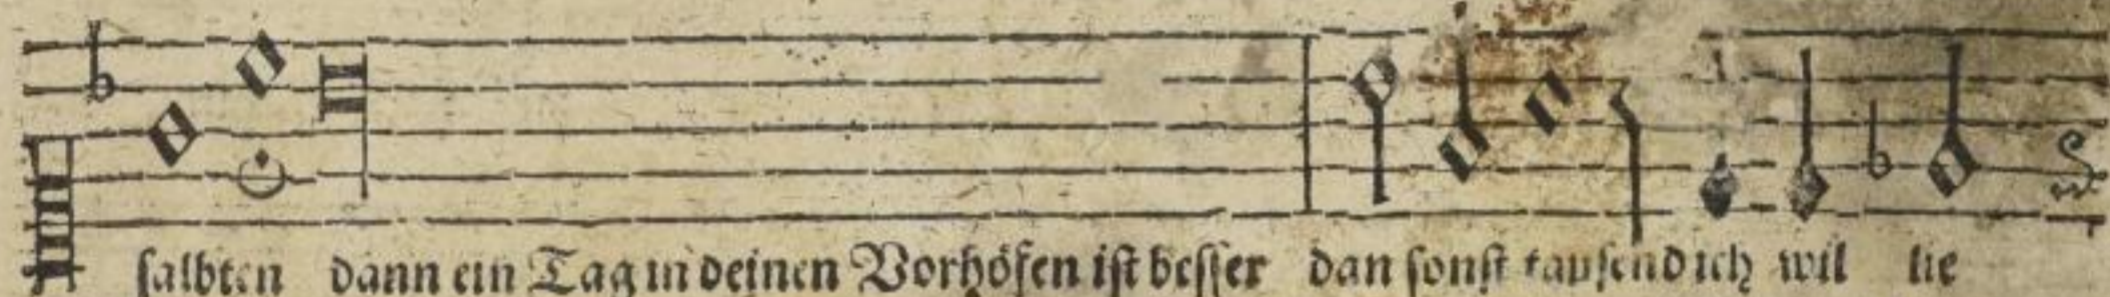 ſalbten dann ein Tag in deinen Vorhöfen iſt beſſer dan ſonſt tauſend ich wil lie